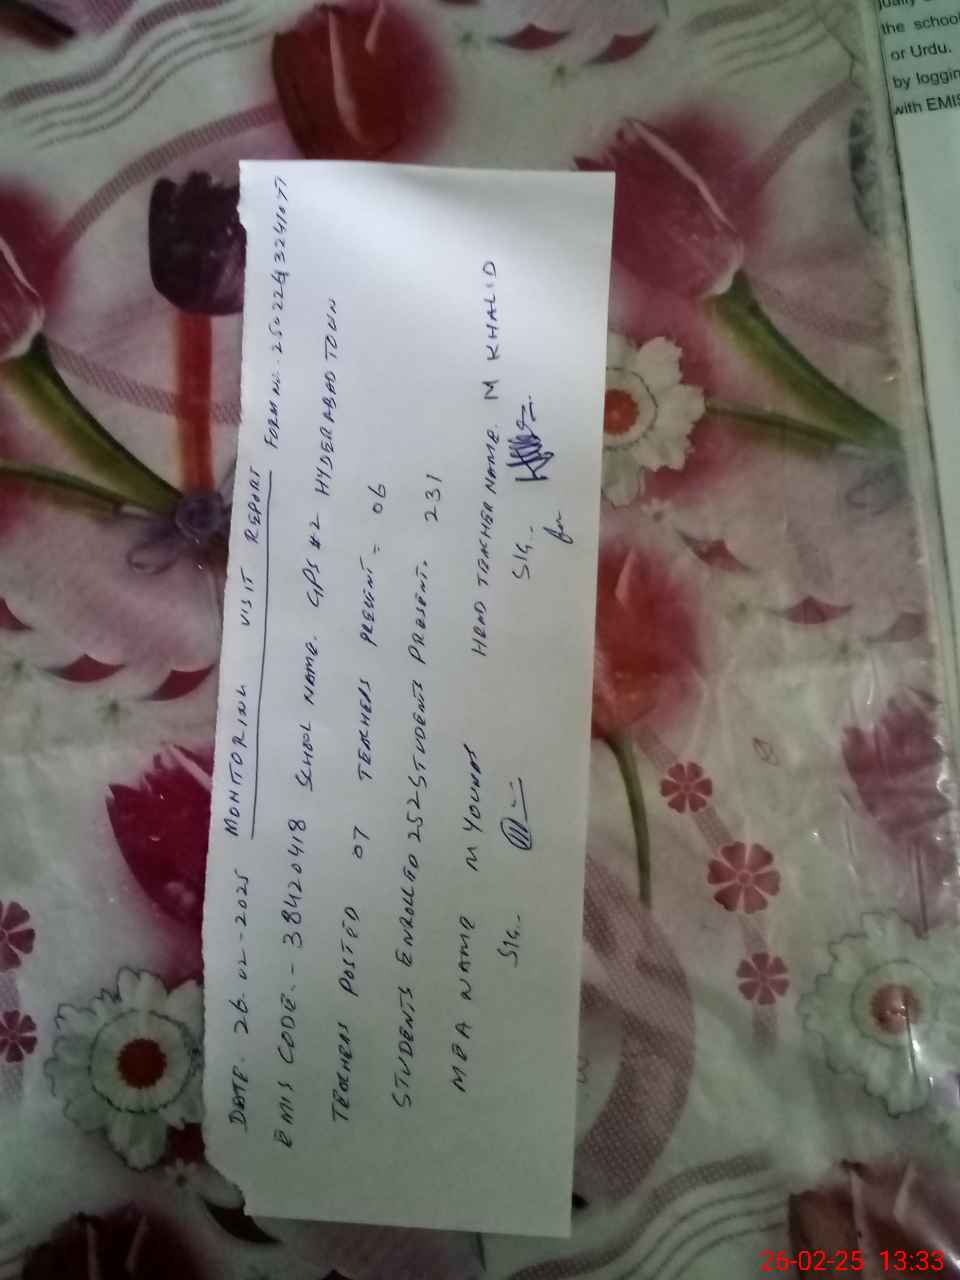 DATE. 26-02-2025 MONITORING VISIT REPORT
FORM NO.-
EMIS CODE.- 38420418 SCHOOL NAME. GPS #2 HYDERABAD TOWN
TEACHERS POSTED 07 TEACHERS PRESENT = 06
STUDENTS ENROLLED 252 STUDENTS PRESENT. 231
MEA NAME M YOUNAS HEAD TEACHER NAME. M KHALID
SIG.. SIG..
for
the school
or Urdu.
by logging
with EMIS
26-02-25 13:33